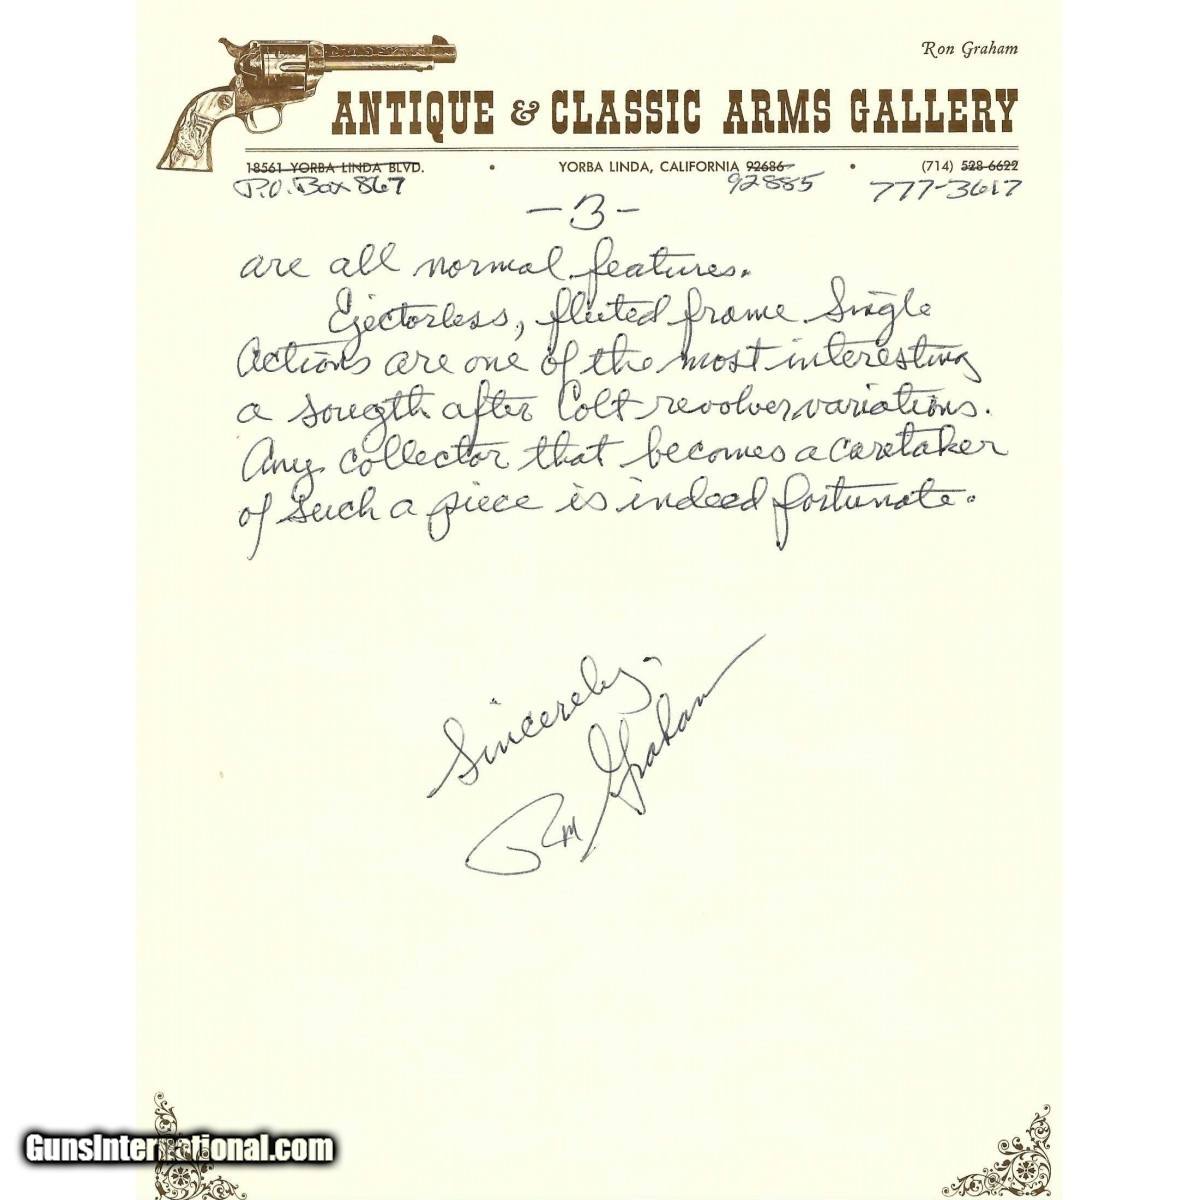 Ron Graham
ANTIQUE & CLASSIC ARMS GALLERY
18561 YORBA LINDA BLVD. • YORBA LINDA, CALIFORNIA 92686 • (714) 528-6622
P.O. Box 867 92885 777-3617
-3-
are all normal features.
Ejectorless, fluted frame Single
Actions are one of the most interesting
a sougth after Colt revolver variations.
Any collector that becomes a caretaker
of such a piece is indeed fortunate.
Sincerely,
Ron Graham
GunsInternational.com